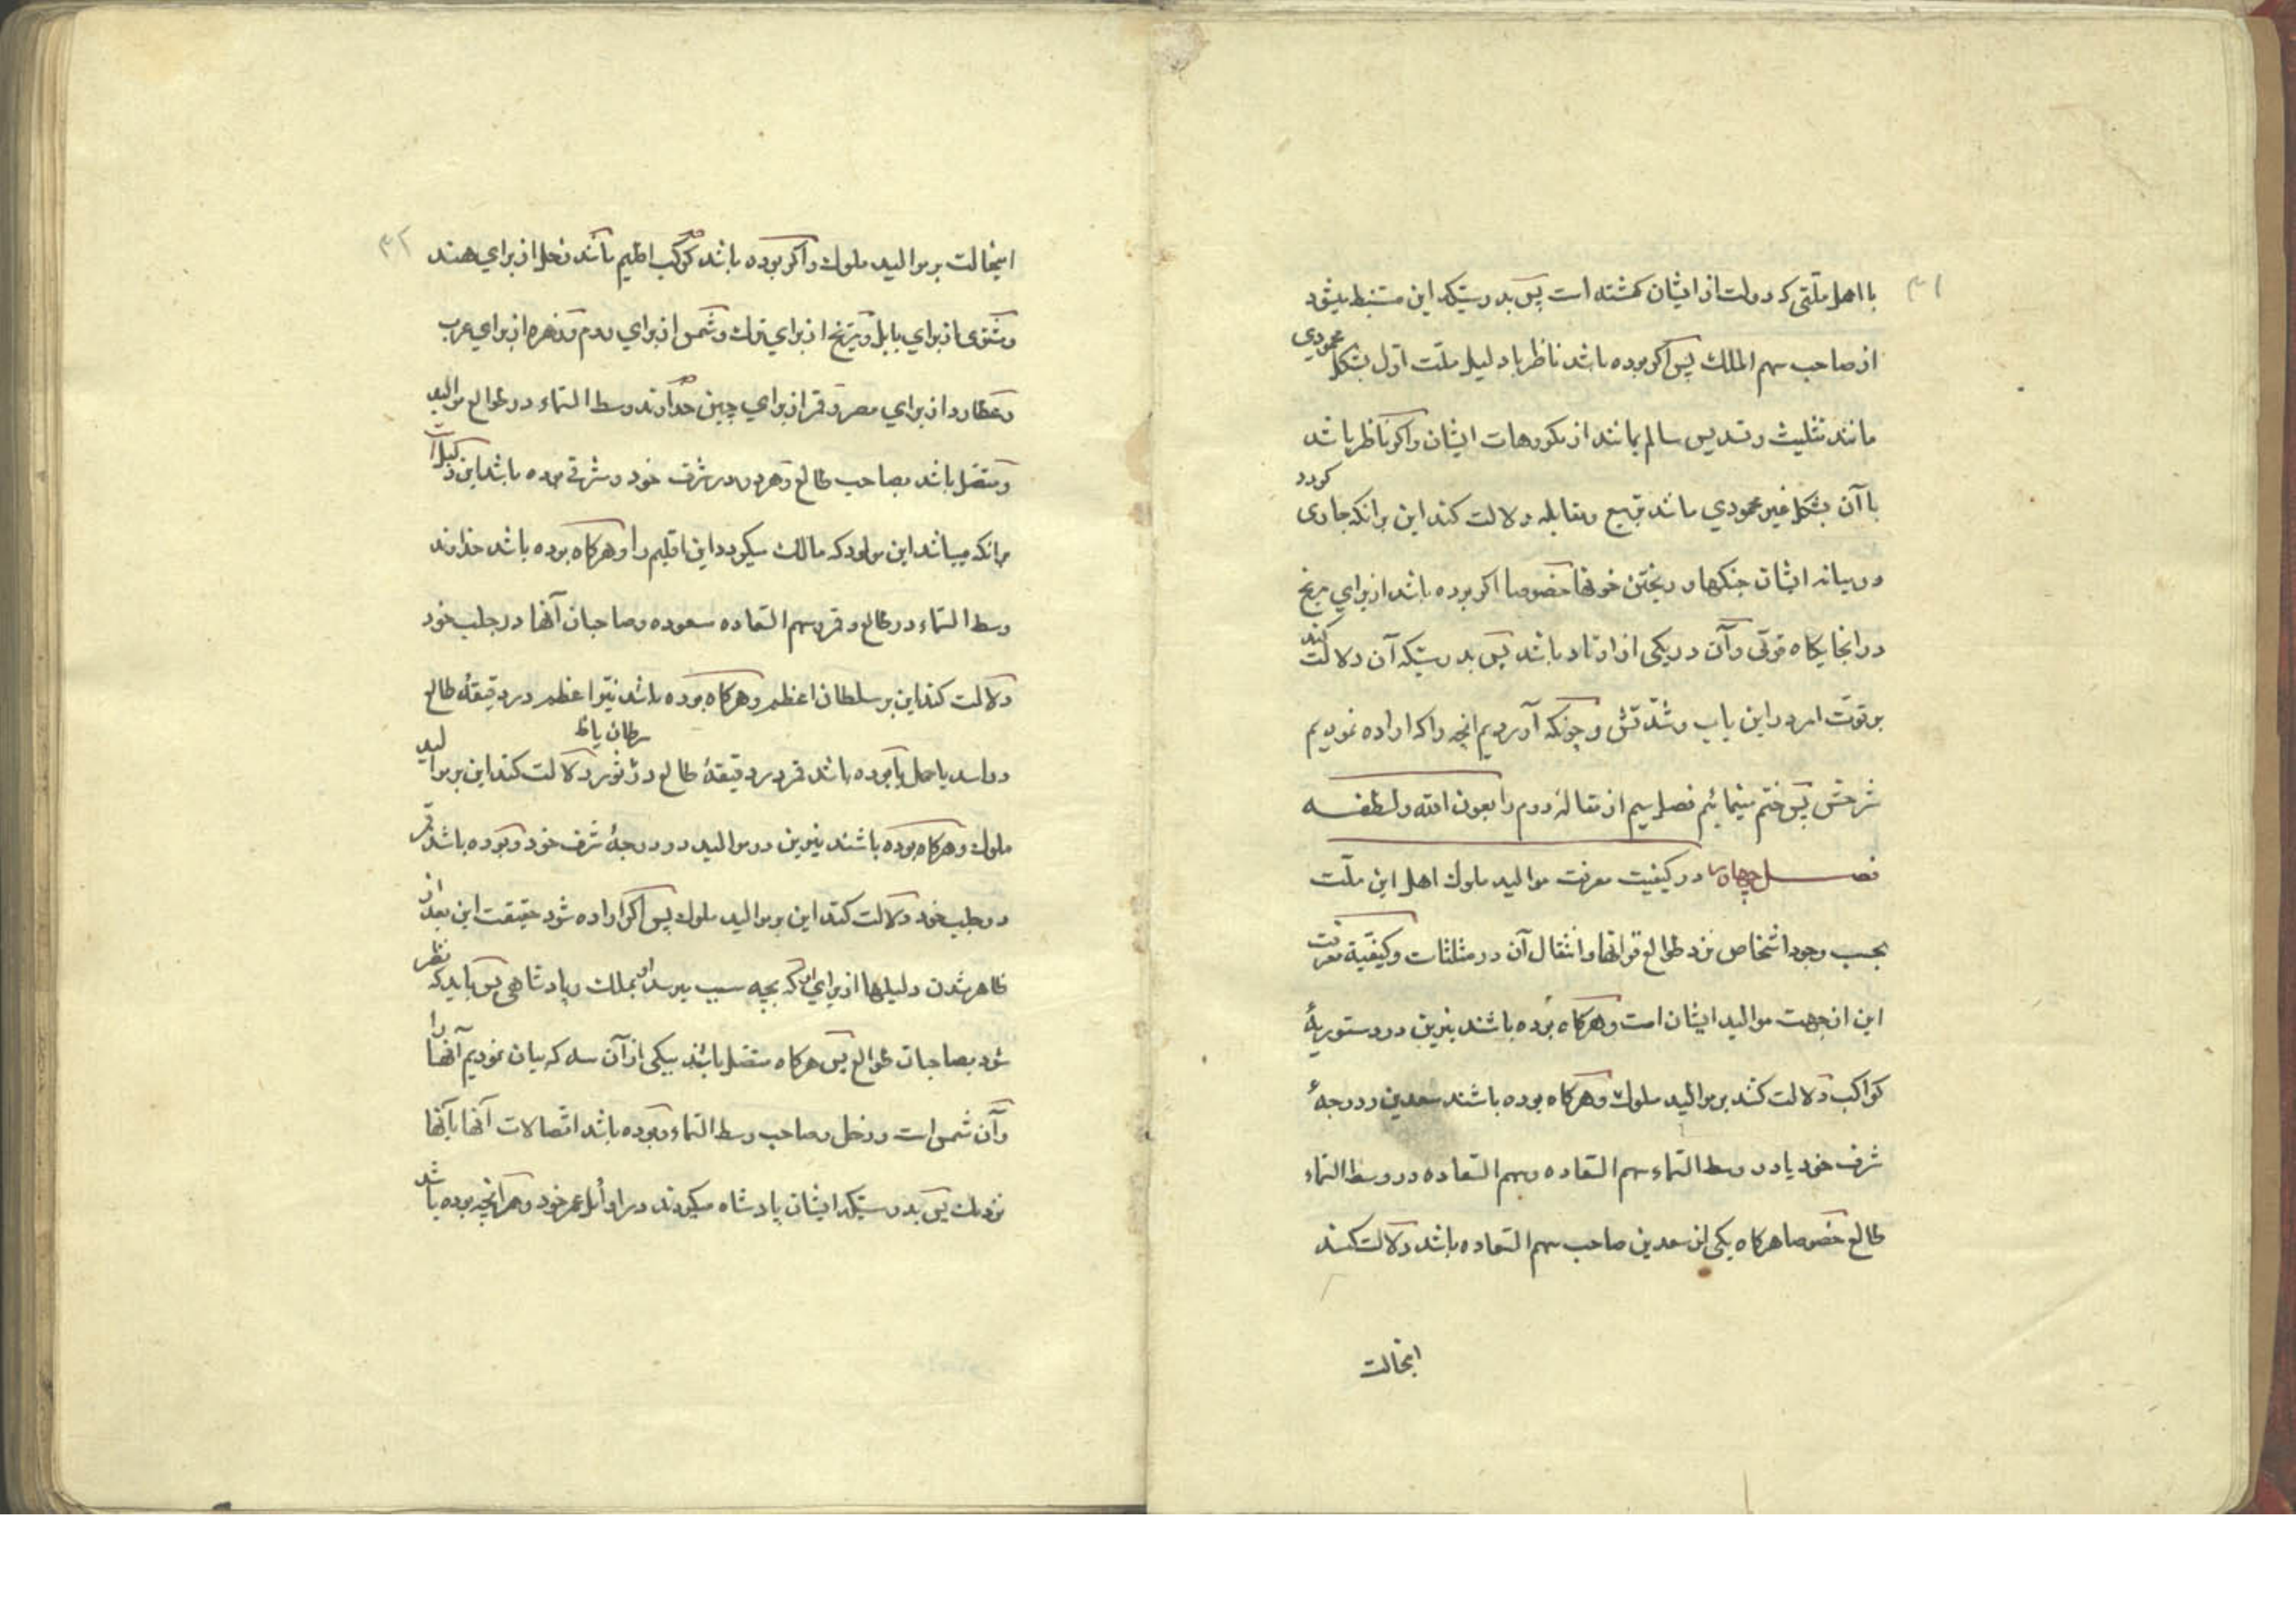 ۳۱
با اهل ملتی که دولت از ایشان کشته است پس بدرستیکه این مستنبط میشود
از صاحب سهم الملك پس اکر بوده باشد ناظر با دلیل ملت اول بشکل محمودي
مانند تثلیث و تسدیس سالم بمانند از مکروهات ایشان و اکر ناظر باشد
با آن بشکل غیر محمودي مانند تربیع و مقابله دلالت کند این برانکه جاری کردد
در میانه ایشان جنکها و ریختن خونها خصوصا اکر بوده باشد از براي مریخ
در انجایکاه قوتی و آن در یکی از اوتاد باشد پس بدرستیکه آن دلالت کند
بر قوت امر در این باب و شدتش و چونکه آوردیم انچه را که اراده نمودیم
شرحش پس ختم مینمائیم فصل سیم از مقاله دوم را بعون الله و لطفه
فصل چهارم در کیفیت معرفت موالید ملوك اهل این ملت
بحسب وجود اشخاص نزد طوالع قرانها و انتقال آن در مثلثات و کیفیة معرفت
این از جهت موالید ایشان است و هرکاه بوده باشند نیرین در دستوریهٔ
کواکب دلالت کنند بر موالید ملوك و هرکاه بوده باشند سعدین در درجهٔ
شرف خود یا در وسط السماء سهم السعاده و سهم السعاده در وسط السماء
طالع خصوصا هرکاه یکی از سعدین صاحب سهم السعاده باشد دلالت کنند
اینحالت
۳۲
اینحالت بر موالید ملوك و اکر بوده باشد کوکب اقلیم مانند زحل از براي هند
و مشتری از براي بابل و مریخ از براي ترك و شمس از براي روم و زهره از براي عرب
و عطارد از براي مصر و قمر از براي چین خداوند وسط السماء در طوالع موالید
و متصل باشد بصاحب طالع و هر دو در شرف خود و شرقی بوده باشد این دلیل است
برانکه میباشد این مولود که مالك میکردد این اقلیم را و هرکاه بوده باشد خداوند
وسط السماء در طالع و قمر و سهم السعاده مسعوده و صاحبان آنها در حلب خود
دلالت کند این بر سلطان اعظم و هرکاه بوده باشد نیّر اعظم در دقیقهٔ طالع
در اسد یا حمل یا بوده باشد قمر در دقیقهٔ طالع در ثور سرطان یا دلالت کند این بر موالید
ملوك و هرکاه بوده باشند نیرین در موالید در درجهٔ شرف خود و بوده باشد قمر
در حلب خود دلالت کند این بر موالید ملوك پس اکر اراده شود حقیقت این بعد از
ظاهر شدن دلیلها از براي او که بچه سبب میرسد او بملك و پادشاهی پس باید که نظر
شود بصاحبان طوالع پس هرکاه متصل باشند بیکی از آن سه که بیان نمودیم آنها را
و آن شمس است و زحل و صاحب وسط السماء و بوده باشد اتصالات آنها بآنها
نزدیك پس بدرستیکه ایشان پادشاه میکردند در اوائل عمر خود و هر انچه بوده باشد